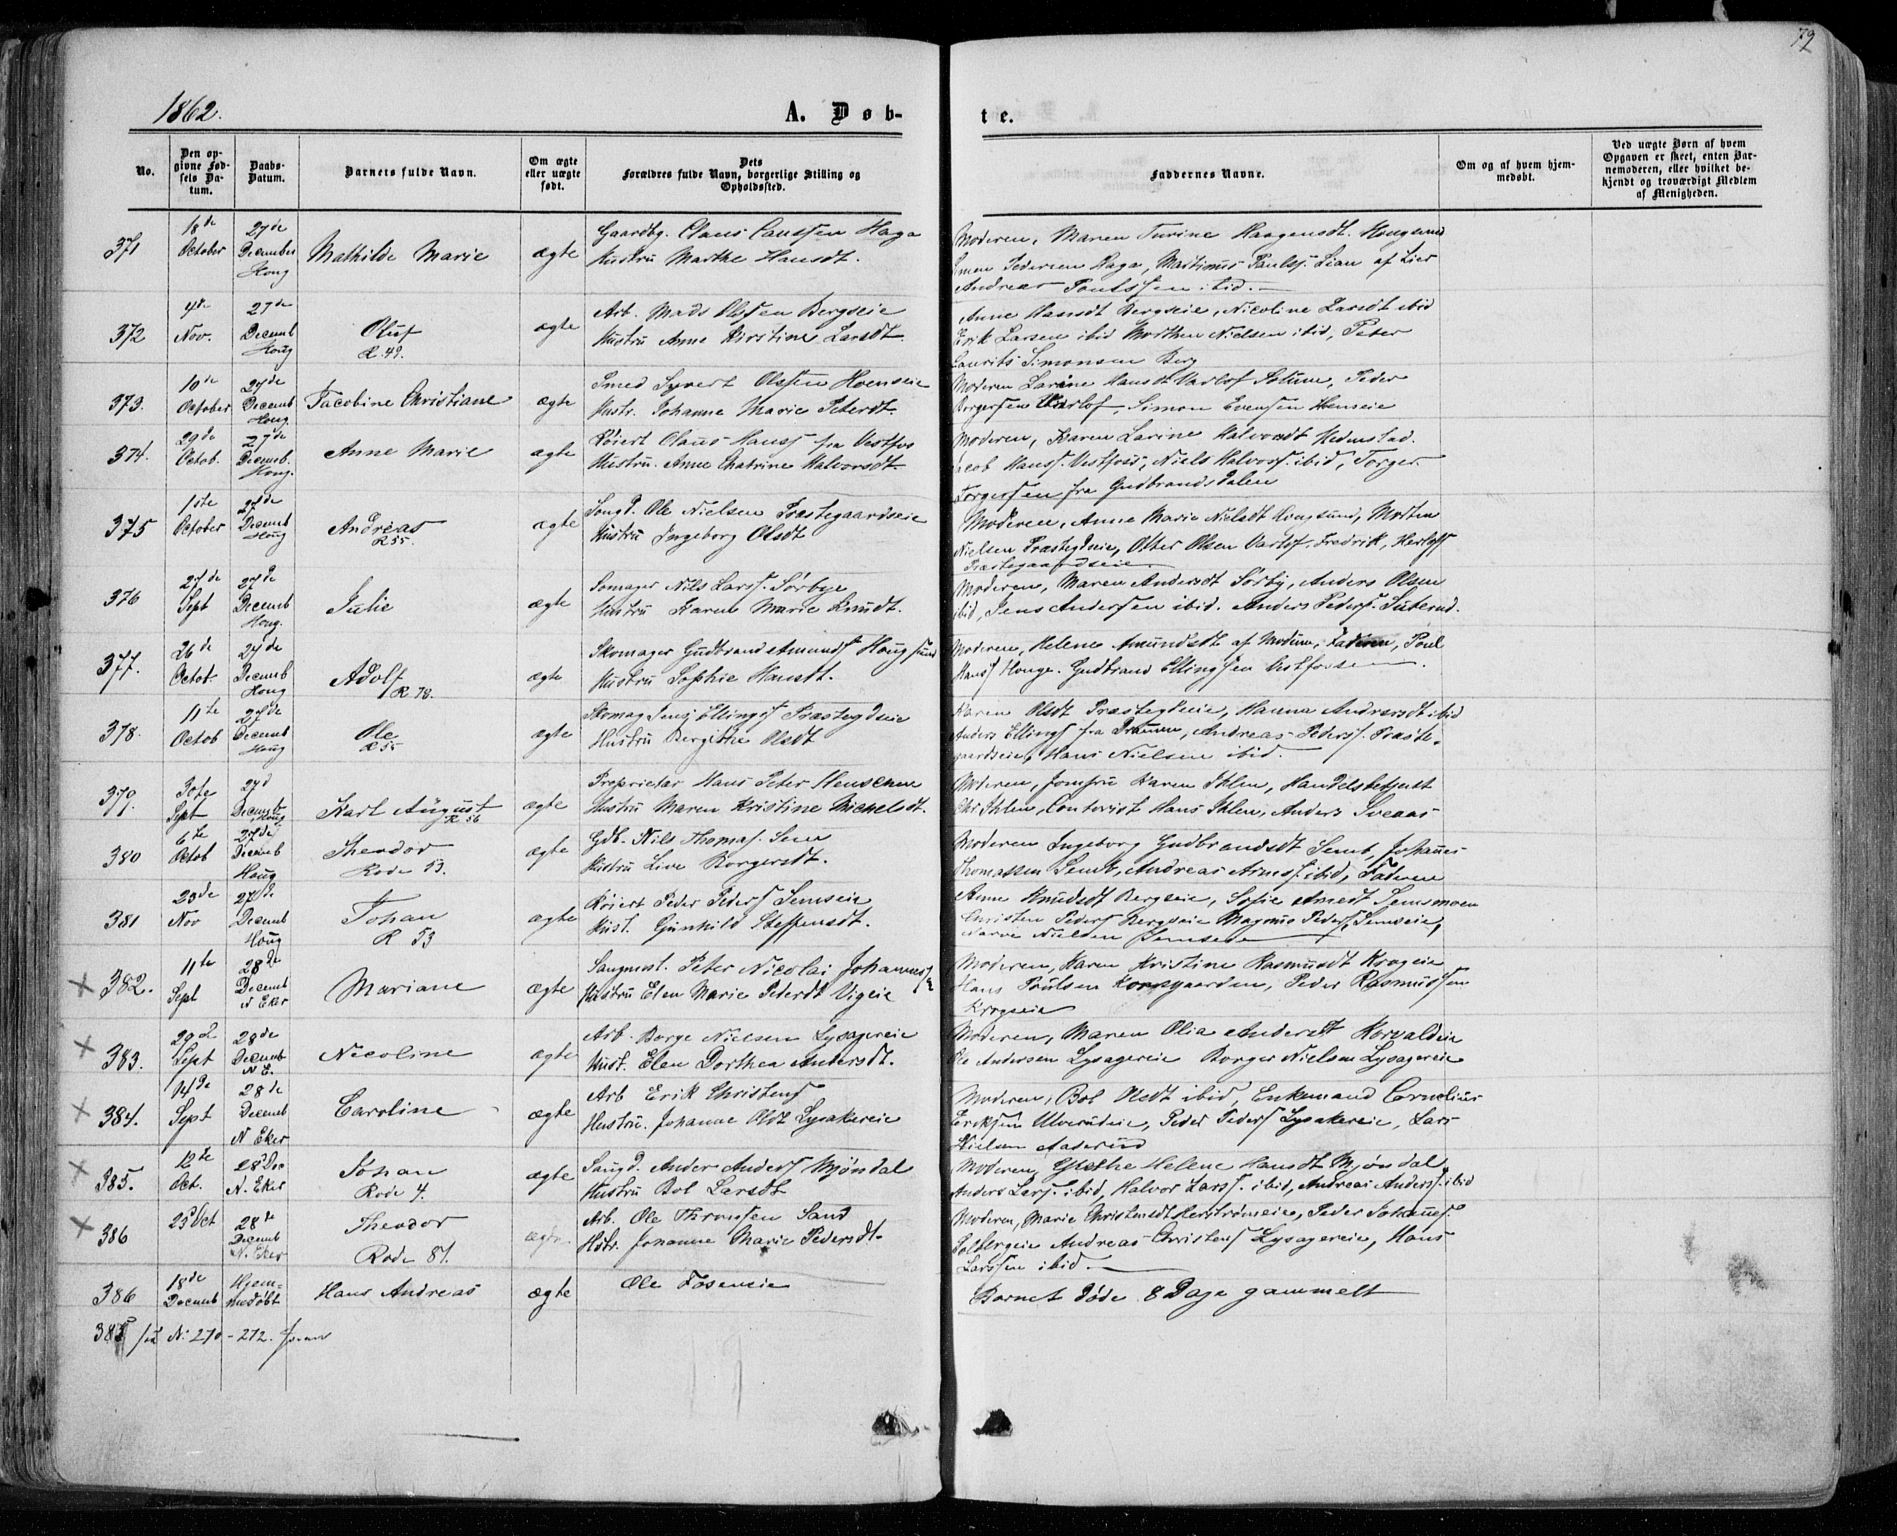 72
1862.
A. Døb-
te.
No.
Den opgivne Fødsels Datum.
Daabs-Datum.
Barnets fulde Navn.
Om ægte eller uægte født.
Dets Forældres fulde Navn, borgerlige Stilling og Opholdssted.
Faddernes Navne.
Om og af hvem hjemmedøbt.
Ved uægte Børn af hvem Opgaven er skeet, enten Barnemoderen, eller hvilket bekjendt og troværdigt Medlem af Menigheden.
371 18de October 27de December Houg Mathilde Marie ægte
Gaardbg. Claus Haga
Hustru Marthe Hansdt.
Moderen, Maren Turine Haagensdt. Hougsund
Pedersen Haga, Martinus Paulss. Lian af Lier
Andreas ibid.
372 4de Nov. 27de Decemb Houg Oluf R. 49. ægte
Arb. Mads Olssen Bergseie
Hustru Anne Kirstine Larsdt
Anne Hansdt Bergseie, Nicoline Larsdt ibid
Erik Larsen ibid Morthen Nielsen ibid, Peter
Laurits Simonsen Berg
373. 10de October 27de Decemb Houg. Jacobine Christiane ægte
Smed Syvert Olssen Hoenseie
Hustr. Johanne Marie Peterdt.
Moderen Larine Hansdt Varlof Peder
Borgersen Varlof, Simon Evensen Hoenseie
374. 29de Octob. 27de Decemb. Houg. Anne Marie ægte
Røiert Olaus Hanss fra Vestfos
Hustru. Anne Chatrine Halvorsdt
Moderen, Karen Larine Halvorsdt Hedenstad.
Jacob Hanss. Vestfoss, Niels Halvorss. ibid, Torger
Torgerssen fra Gudbrandsdalen
375 1ste October 27de Decemb Houg Andreas R 55. ægte
Ole Nielsen Præstegaardseie
Hustru Ingeborg Olsdt
Moderen, Anne Marie Nielsdt Hougsund, Morten
Nielsen Præstegdseie, Otter Olsen Varlof, Fredrik,
Præstegaardseie
376 27de Sept 27de Decemb Houg. Julie ægte
Somager Nils Larss. Sørbye
Hustru Karen Marie Knudt.
Moderen, Maren Andersdt Sørby, Anders Olsen
ibid, Jens Andersen ibid. Anders Pederss.
377. 26de Octob. 27de Decemb Houg Adolf R 78. ægte
Skomager Gudbrand Amunds Hougsund
Hustru Sophie Hansdt.
Moderen, Helene Amundsdt af Modum, Faderen, Poul
Hanss Houge. Gudbrand Ellingsen Vestfossen.
378. 11te Octob 27de Decemb Houg Ole R 55 ægte
Skomag Jens Ellingss Præstegdseie
Hustru Bergitte Olsdt
Karen Olsdt Præstegdseie, Hanna Andersdt ibid
Anders Ellingss fra Drammen, Andreas Pederss. Præste-
gaardseie, Hans Nielsen ibid.
379. 30te Sept 27d Decemb Houg Karl August R 56 ægte
Proprietær Hans Peter Henschen
Hustru Maren Kristine Michelsdt.
Moderen, Jomfru Karen Ihlen, Handelsbetjent
Chr Ihlen, Contorist Hans Ihlen, Anders Sveaas
380 6te Octob 27de Decemb Houg Theodor Rode 53. ægte
Gdb. Nils Thomass. Sem
Hustru Live Borgersdt.
Moderen Ingeborg Gudbrandsdt Semb, Johannes
Thomassen Semb, Andreas ibid, Faderen
381 23de Nov 27de Decemb Houg Johan R 53 ægte
Røiert Peder Pederss Semseie
Hust. Gunhild Steffensdt.
Anne Knudsdt Bergseie, Sofie Semsmoen
Christen Pederss Bergseie Magnus Pederss. Semseie,
Nielsen Semseie
× 382. 11te Sept 28de Decemb N Eker Mariane ægte
Sangmest. Peter Nicolai Johannessen
Hustru Elen Marie Pedersdt Vigeie
Moderen, Karen Kristine Rasmusdt Krogeie
Hans Poulsen Korsgaarden, Peder Rasmussen
Krogseie
× 383. 29d Sept 28de Decemb N E. Nicoline ægte
Arb. Borge Nielsen Lysagereie
Hust. Elen Dorthea Andersdt.
Moderen, Maren Olia Andersdt Horvaldeie
Ole Andersen Lysagereie Borger Nielsen Lysagereie
× 384. 14de Sept 28de Decemb N Eker Caroline ægte
Arb Erik Christens
Hustru. Johanne Olsdt Lysakereie
Moderen, Bol Olsdt ibid, Enkemand Cornelius
Eriksen Ulverudeie, Peder Pederss Lysakereie, Lars
Nielsen Aaserud
× 385. 12te Oct. 28de Dec N. Eker Johan Rode 4. ægte
Saugd. Anders Anderss Mjøndal
Hustru Bol Larsdt
Moderen, Grethe Helene Hansdt Mjøndal
Anders Larss. ibid, Halvor Larss. ibid, Andreas Anderss. ibid
× 386 25d Oct 28de Decemb N. Eker Theodor Rode 81. ægte
Arb. Ole Thronsen Sand
Hstr. Johanne Marie Pedersdt.
Moderen, Marie Christensdt Peder Johanes.
Andreas Christenss Lysagereie, Hans
Larssen ibid.
386 18de Decemb Hjemmedøbt Hans Andreas ægte
Ole Foseneie
Barnet døde 8 Dage gammelt
N. 270 - 272.